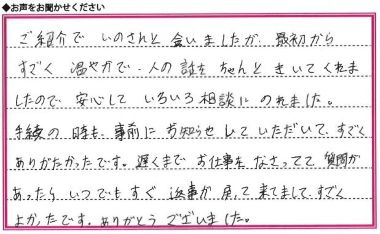 ◆お声をお聞かせください
ご紹介で いのさんと 会いましたが、最初から
すごく 温やかで、人の話を ちゃんと きいてくれま
したので 安心して いろいろ相談に のれました。
手続の 時も、事前に お知らせ して いただいて、すごく
ありがたかったです。遅くまで お仕事を なさってて 質問が
あったら いつでも すぐ 返事が 戻って 来てまして、すごく
よかったです。ありがとう ございました。